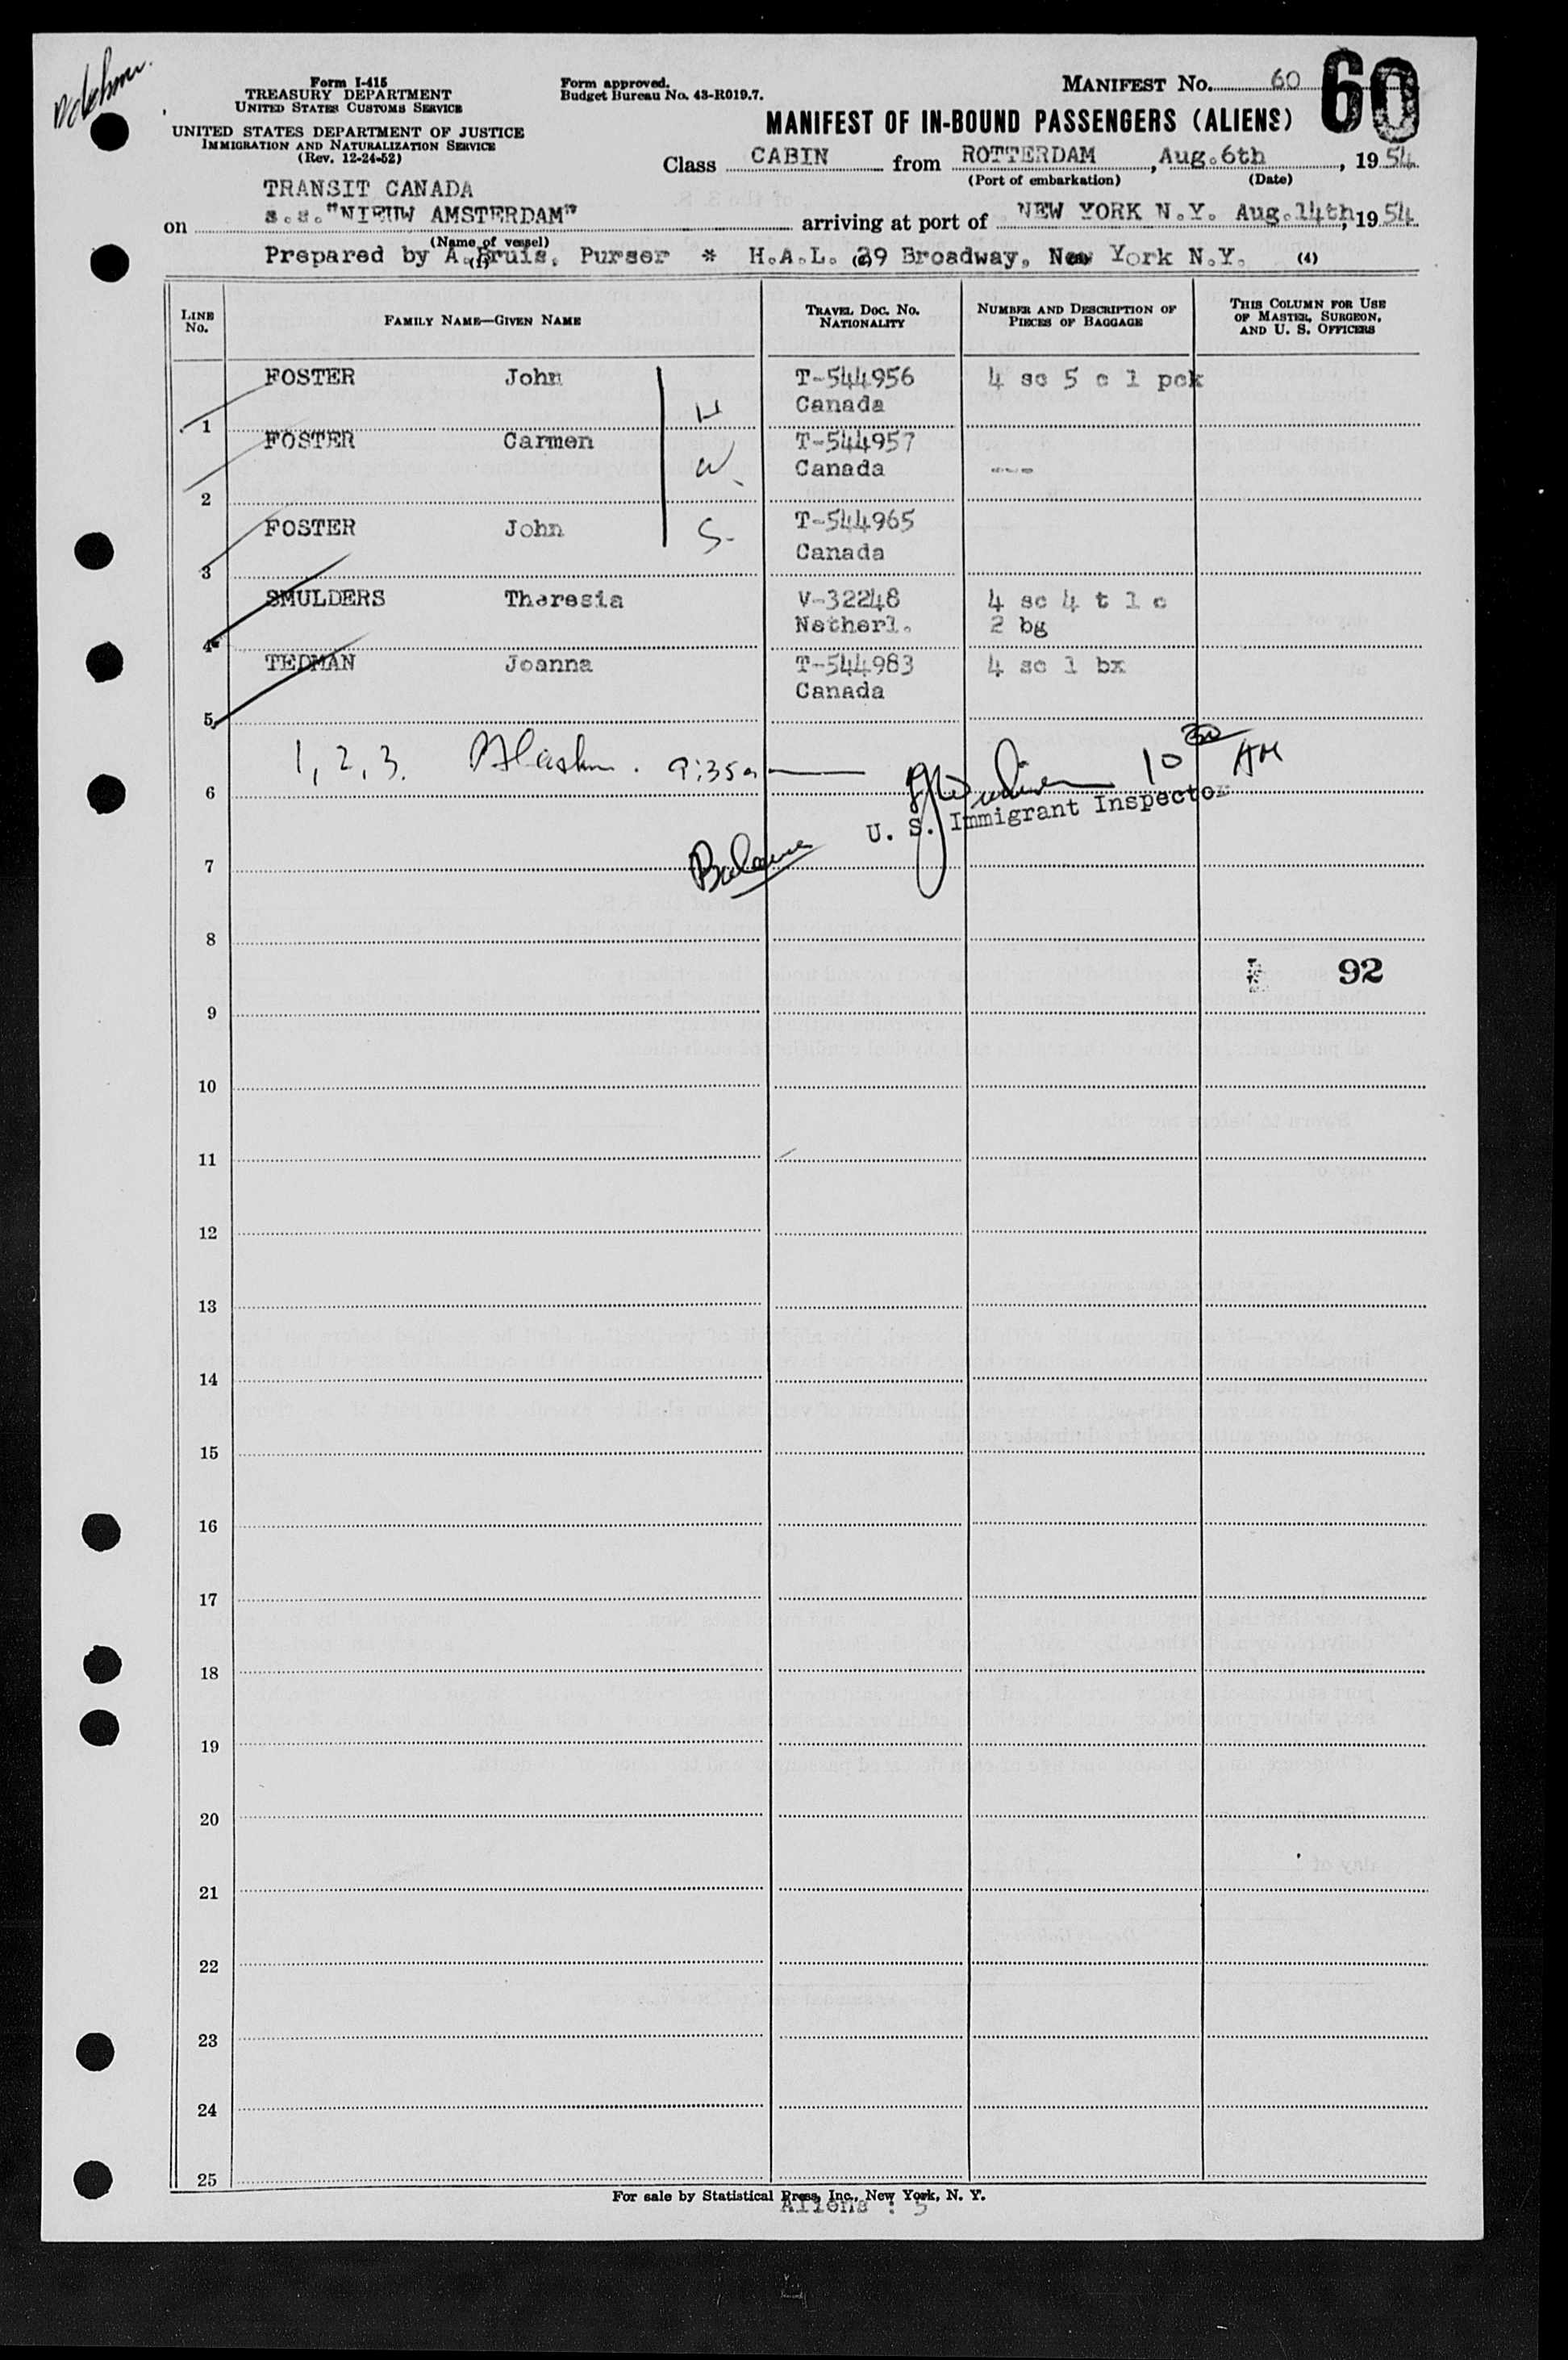 Form I-415
TREASURY DEPARTMENT
UNITED STATES CUSTOMS SERVICE
UNITED STATES DEPARTMENT OF JUSTICE
IMMIGRATION AND NATURALIZATION SERVICE
(Rev. 12-24-52)
Form approved.
Budget Bureau No. 43-R019.7.
MANIFEST No. 60
60
MANIFEST OF IN-BOUND PASSENGERS (ALIENS)
Class CABIN from ROTTERDAM, Aug.6th, 1954
(Port of embarkation) (Date)
TRANSIT CANADA
on s.s."NIEUW AMSTERDAM" arriving at port of NEW YORK N.Y. Aug.14th, 1954
(Name of vessel)
Prepared by A. Bruis, Purser * H.A.L. 29 Broadway, New York N.Y.
(1) (2) (4)
LINE No. FAMILY NAME—GIVEN NAME TRAVEL DOC. NO. NATIONALITY NUMBER AND DESCRIPTION OF PIECES OF BAGGAGE THIS COLUMN FOR USE OF MASTER, SURGEON, AND U. S. OFFICERS
FOSTER John T-544956 4 sc 5 c 1 pck
1 H Canada
FOSTER Carmen T-544957
2 W Canada ---
FOSTER John S. T-544965
3 Canada
SMULDERS Theresia V-32248 4 sc 4 t 1 c
4 Netherl. 2 bg
TEDMAN Joanna T-544983 4 sc 1 bx
5 Canada
1, 2, 3. 9:35 10 30 AM
6
U. S. Immigrant Inspector
7 Balance
8
92
9
10
11
12
13
14
15
16
17
18
19
20
21
22
23
24
25
For sale by Statistical Press, Inc., New York, N. Y.
Aliens : 5